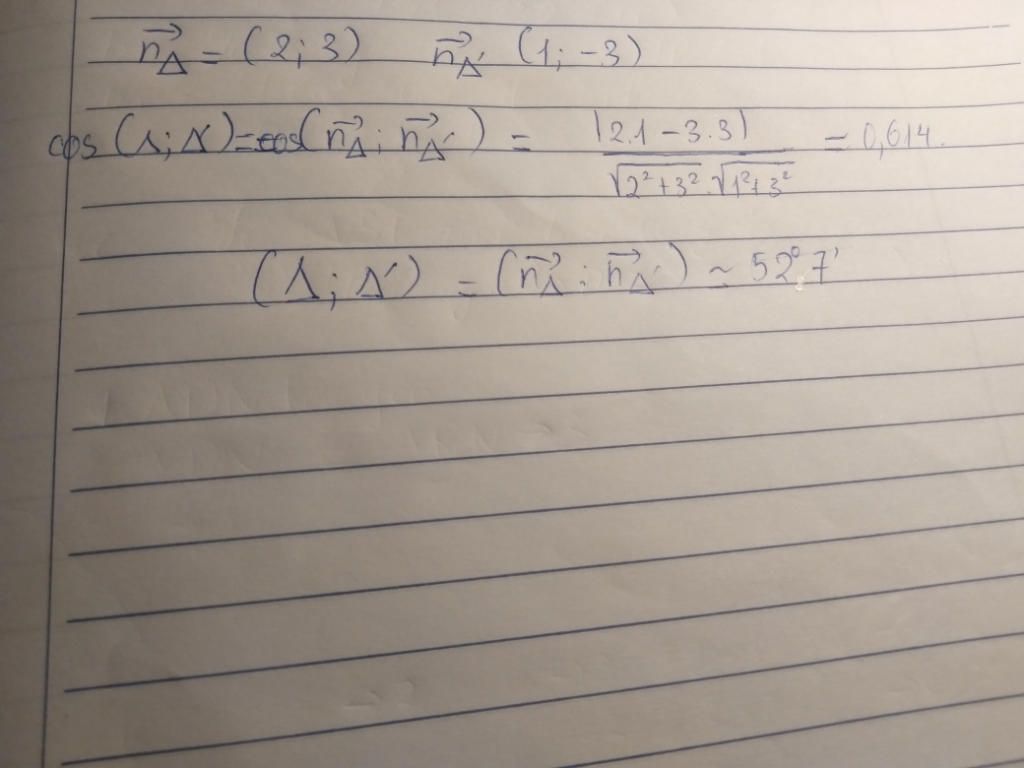 n⃗Δ = (2; 3) n⃗Δ' (1; -3)
cos (Δ; Δ') = cos(n⃗Δ; n⃗Δ') = |2.1 - 3.3| / √2²+3² . √1²+3² = 0,614.
(Δ; Δ') = (n⃗Δ; n⃗Δ') ~ 52°7'